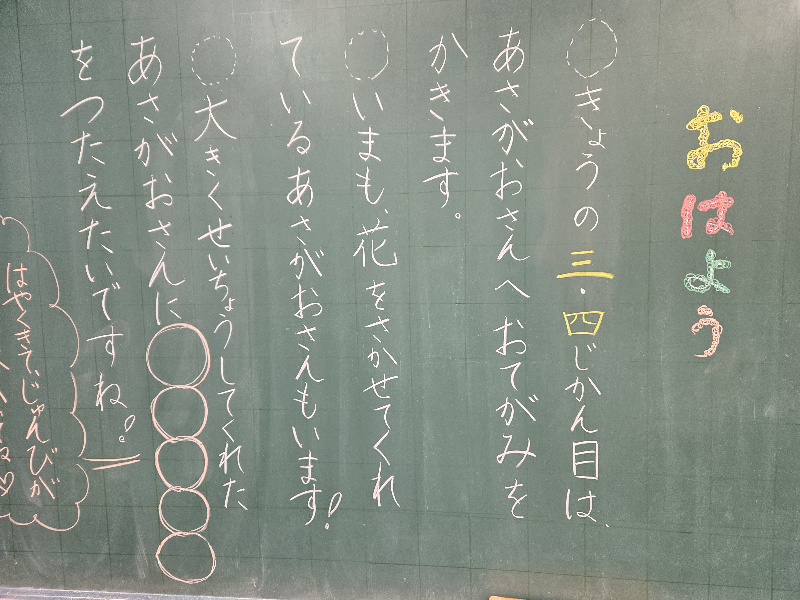 おはよう
○きょうの三・四じかん目は、
あさがおさんへおてがみを
かきます。
○いまも、花をさかせてくれ
ているあさがおさんもいます!
○大きくせいちょうしてくれた
あさがおさんに○○○○○
をつたえたいですね!
はやくきて、じゅんびが